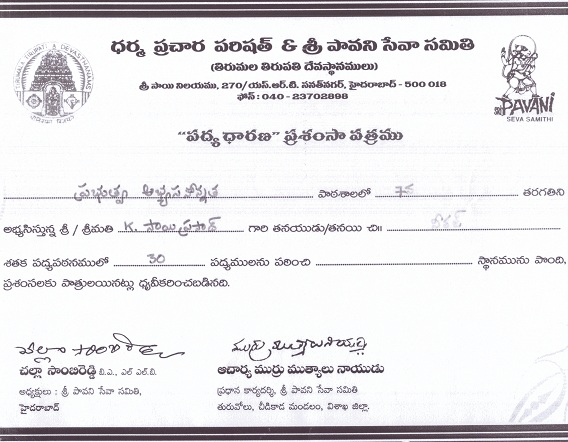 ధర్మ ప్రచార పరిషత్ & శ్రీ పావని సేవా సమితి
(తిరుమల తిరుపతి దేవస్థానములు)
శ్రీ సాయి నిలయము, 270/యస్.ఆర్.టి. సనత్‌నగర్, హైదరాబాద్ - 500 018
ఫోన్ : 040 - 23702898
PAVANI
SEVA SAMITHI
"పద్య ధారణ" ప్రశంసా పత్రము
ప్రభుత్వ అభ్యసనోన్నత పాఠశాలలో 7వ తరగతిని
అభ్యసిస్తున్న శ్రీ / శ్రీమతి K. సాయిప్రసాద్ గారి తనయుడు/తనయి చి॥
శతక పద్యపఠనములో 30 పద్యములను పఠించి స్థానమును పొంది,
ప్రశంసలకు పాత్రులయినట్లు ధృవీకరించబడినది.
చల్లా సాంబిరెడ్డి బి.ఎ., ఎల్ ఎల్.బి.
అధ్యక్షులు : శ్రీ పావని సేవా సమితి
హైదరాబాద్
ఆచార్య ముర్రు ముత్యాలు నాయుడు
ప్రధాన కార్యదర్శి, శ్రీ పావని సేవా సమితి
తురువోలు, చీడికాడ మండలం, విశాఖ జిల్లా.